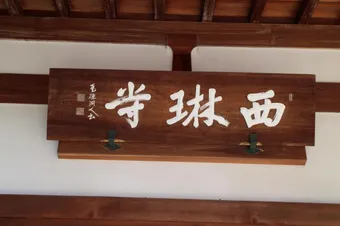 西琳寺